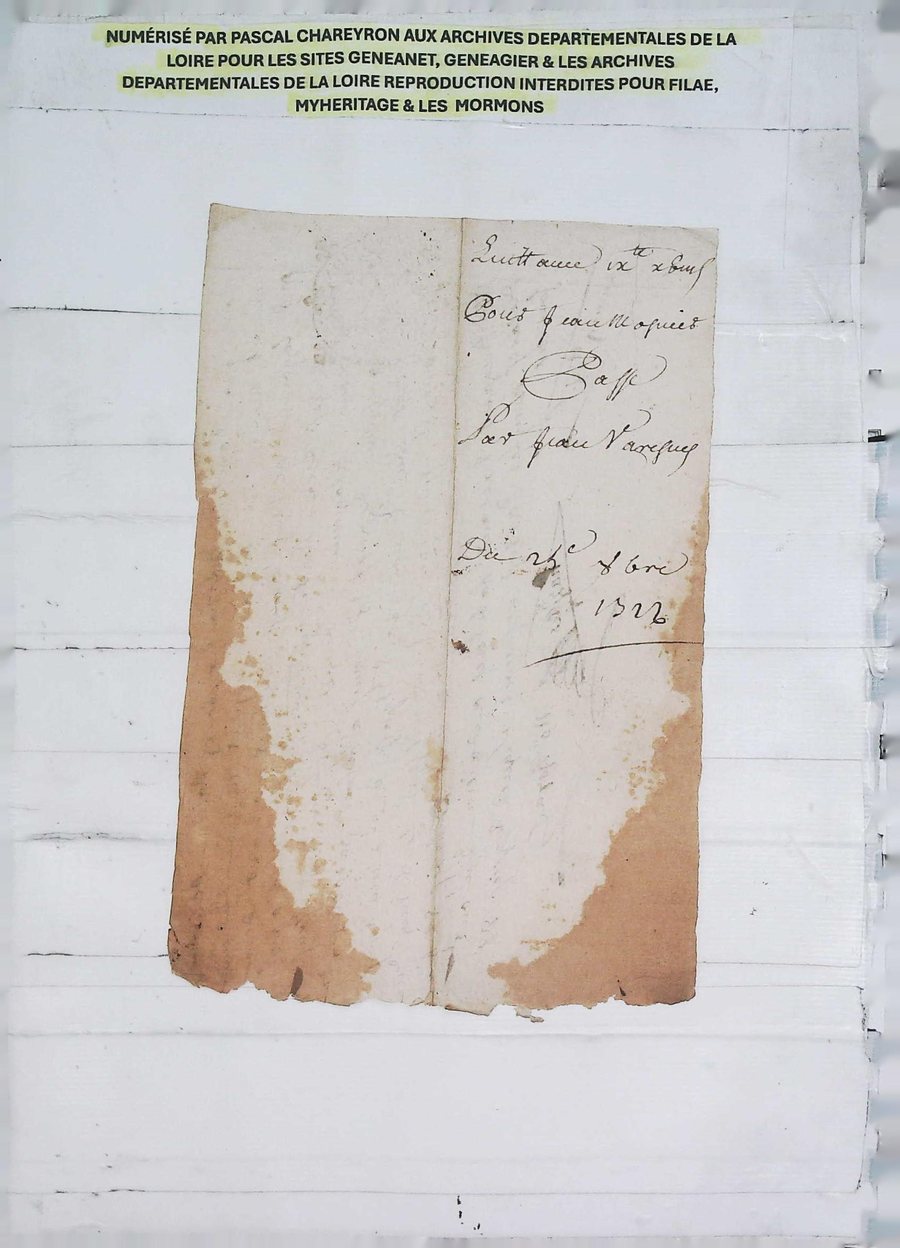 NUMÉRISÉ PAR PASCAL CHAREYRON AUX ARCHIVES DEPARTEMENTALES DE LA
LOIRE POUR LES SITES GENEANET, GENEAGIER & LES ARCHIVES
DEPARTEMENTALES DE LA LOIRE REPRODUCTION INTERDITES POUR FILAE,
MYHERITAGE & LES MORMONS
Quittance
Pour Jean
Passé
Par Jean
Du 8bre